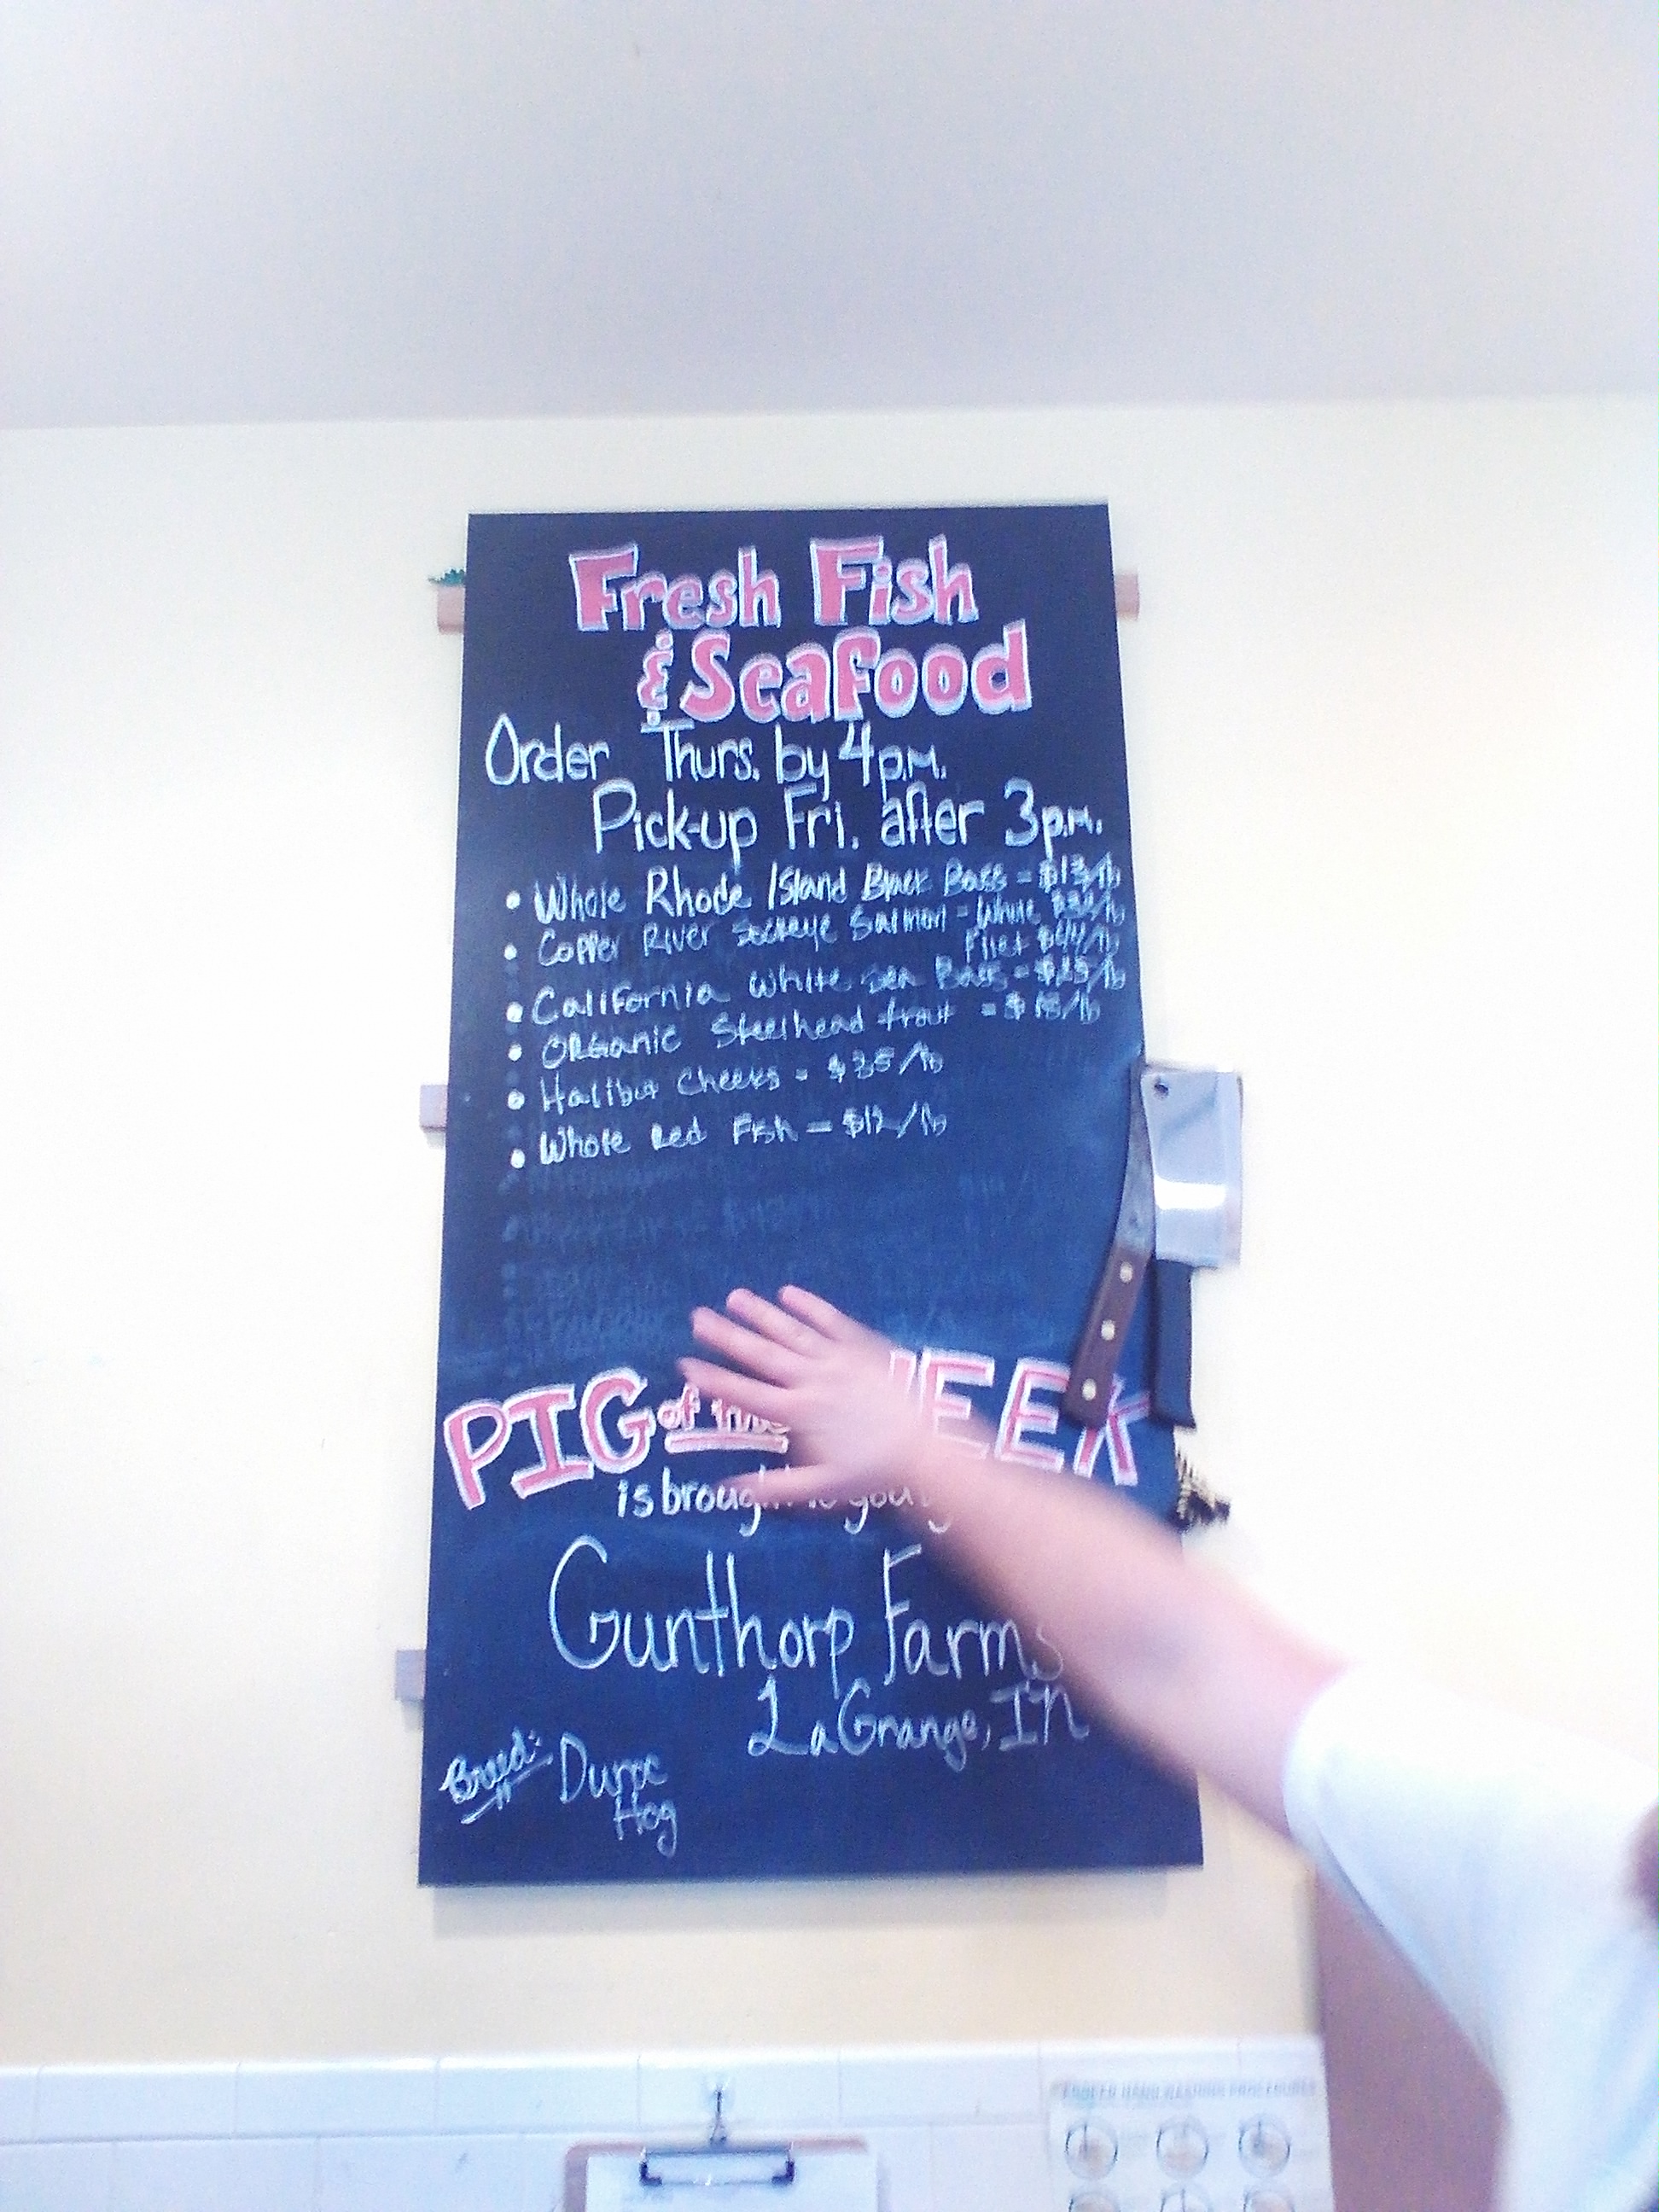 Fresh Fish
& Seafood
Order Thurs. by 4p.m.
Pick-up Fri. after 3p.m.
• Whole Rhode Island Black Bass = $13/lb
• Copper River Sockeye Salmon = Whole /lb
Filet $44/lb
• California White Sea Bass = $25/lb
• Organic Steelhead trout = $18/lb
• Halibut Cheeks = $35/lb
• Whole Red Fish = $12/lb
PIG of the WEEK
is brought to you
Gunthorp Farms
LaGrange, IN
Breed: Duroc
Hog
PROPER HAND WASHING PROCEDURES